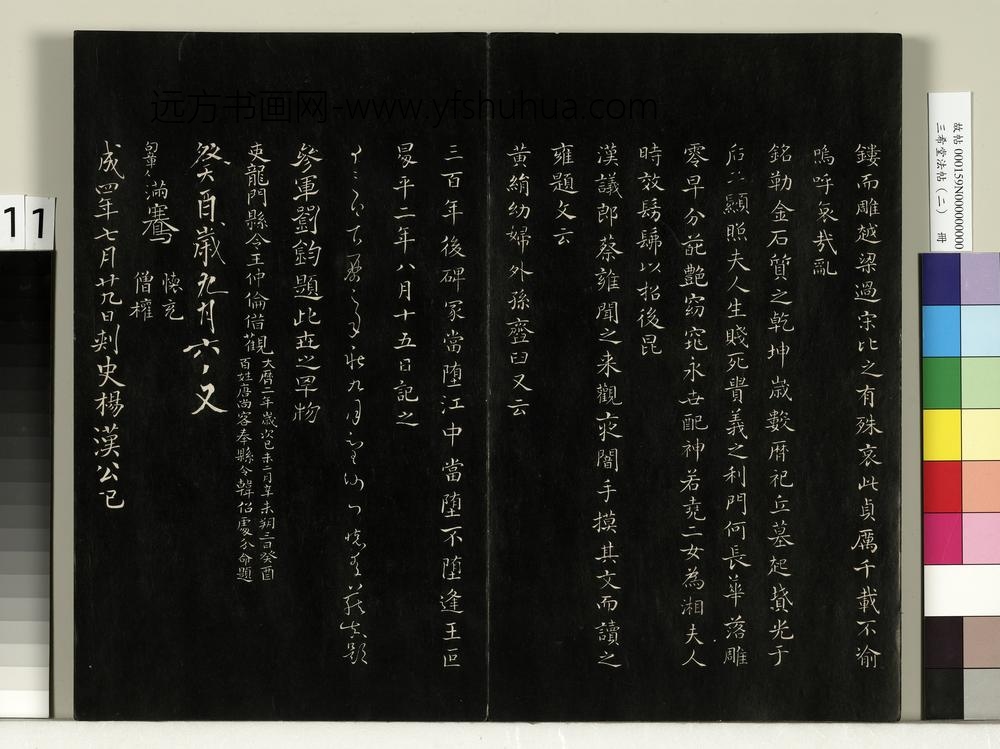 鏤而雕越梁過宋比之有殊哀此貞厲千載不渝
嗚呼哀哉亂
銘勒金石質之乾坤歲數曆祀丘墓起墳光于
后土顯照夫人生賤死貴義之利門何長華落雕
零早分葩艷窈窕永世配神若堯二女為湘夫人
時放髣髴以招後昆
漢議郎蔡雍聞之来觀夜闇手摸其文而讀之
雍題文云
黃絹幼婦外孫齏臼又云
三百年後碑冢當堕江中當堕不堕逢王叵
昇平二年八月十五日記之
參軍劉鈞題此世之罕物
吏龍門縣令王仲倫借觀
大曆二年歲次己未二月辛未朔三日癸酉
百姓唐尚客奉縣令韓佋處分命題
癸酉歲九月六日又
滿騫
懷充
僧權
成四年七月廿九日刺史楊漢公記
远方书画网-www.yfshuhua.com
故帖 000159N000000000
三希堂法帖(二) 冊
11